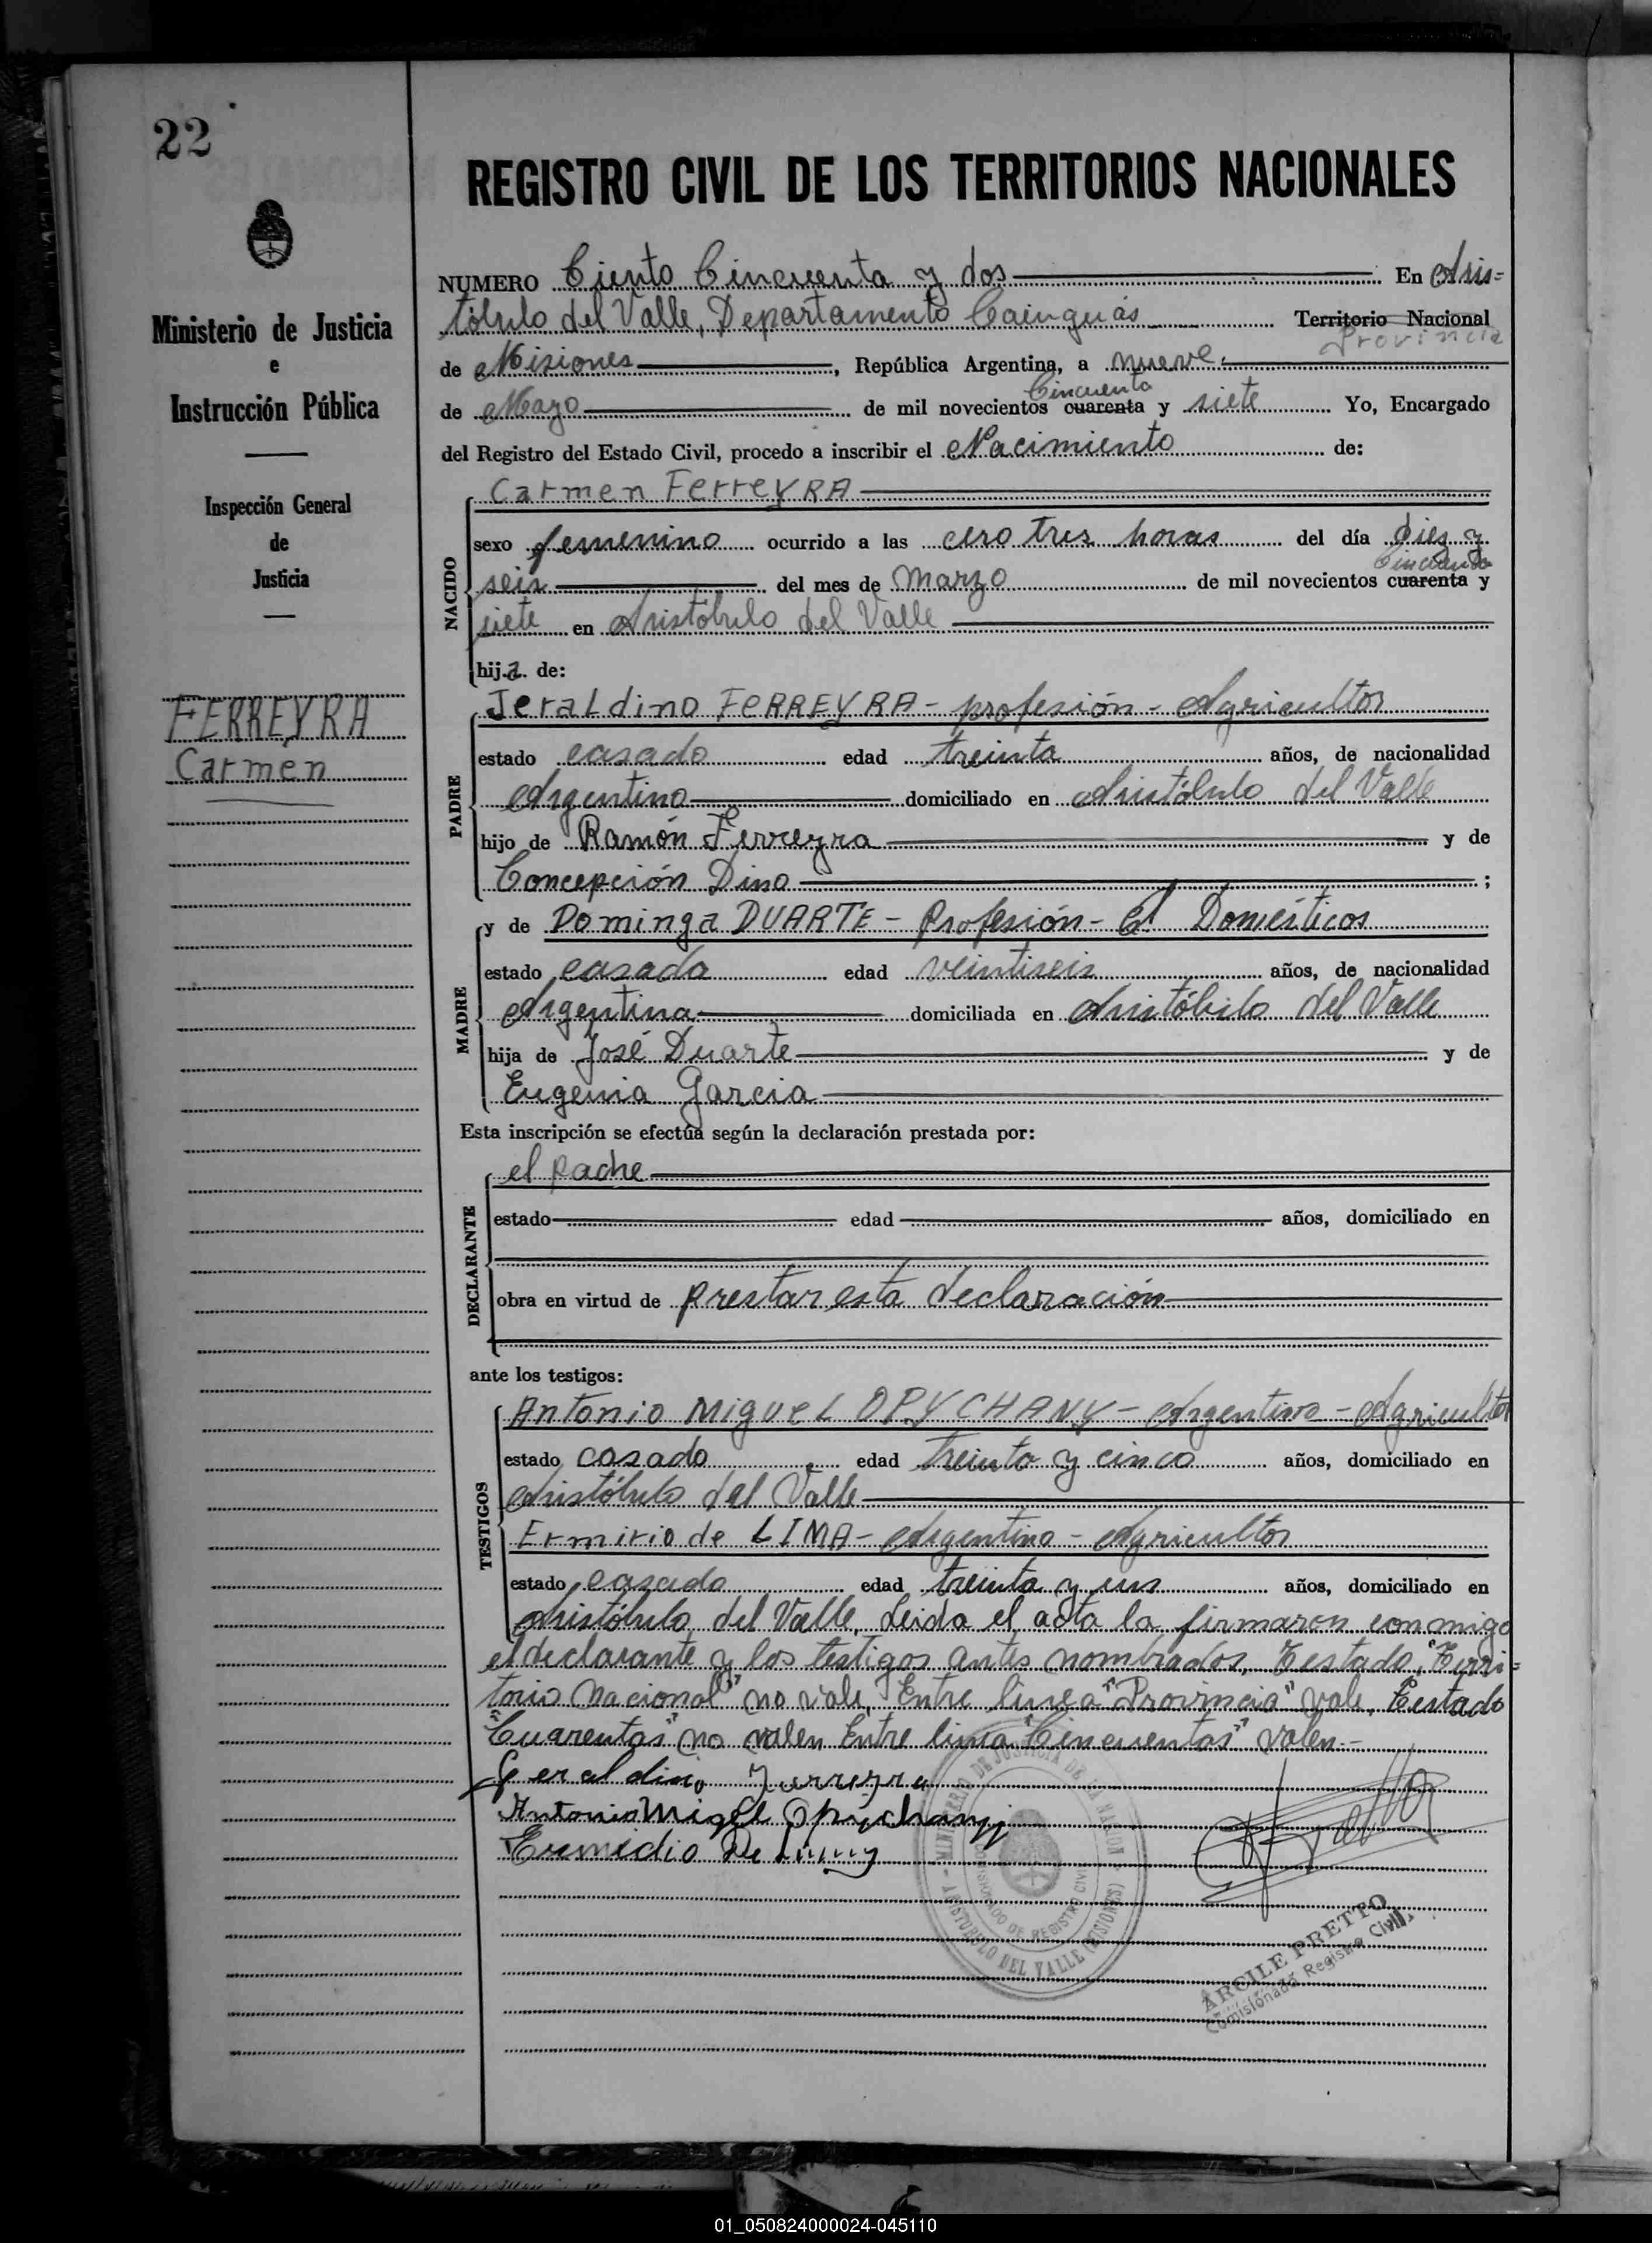 22
REGISTRO CIVIL DE LOS TERRITORIOS NACIONALES
Ministerio de Justicia
e
Instrucción Pública
Inspección General
de
Justicia
FERREYRA
Carmen
NUMERO Ciento Cincuenta y dos En Aris=
tóbulo del Valle, Departamento Cainguás Territorio Nacional
Provincia
de Misiones, República Argentina, a nueve
Cincuenta
de Mayo de mil novecientos cuarenta y siete Yo, Encargado
del Registro del Estado Civil, procedo a inscribir el Nacimiento de:
NACIDO
Carmen FerreyRA
sexo femenino ocurrido a las cero tres horas del día diez y
Cincuenta
seis del mes de Marzo de mil novecientos cuarenta y
siete en Aristóbulo del Valle
hija de:
PADRE
JeraLdino FERREYRA - profesión - Agricultor
estado casado edad treinta años, de nacionalidad
Argentino domiciliado en Aristóbulo del Valle
hijo de Ramón Ferreyra y de
Concepción Dino ;
MADRE
y de Dominga DUARTE - Profesión - Q. Domésticos
estado casada edad veintiseis años, de nacionalidad
Argentina domiciliada en Aristóbulo del Valle
hija de José Duarte y de
Eugenia Garcia
Esta inscripción se efectúa según la declaración prestada por:
DECLARANTE
el padre
estado edad años, domiciliado en
obra en virtud de prestar esta declaración
ante los testigos:
TESTIGOS
Antonio MigueL OPYCHANY - Argentino - Agricultor
estado casado edad treinta y cinco años, domiciliado en
Aristóbulo del Valle
Ermirio de LIMA - Argentino - Agricultor
estado casado edad treinta y un años, domiciliado en
Aristóbulo del Valle. Leida el acta la firmaron conmigo
el declarante y los testigos antes nombrados, Testado, "Terri=
torio Nacional" no vale, Entre linea "Provincia" vale, Testado
"Cuarentas" no valen Entre linea "Cincuentas" valen.-
Geraldino Ferreyra
Antonio Migel Opychanyj
Ermidio De Lima
MINISTERIO DE JUSTICIA DE LA NACION
COMISIONADO DE REGISTRO CIVIL
ARISTOBULO DEL VALLE (MISIONES)
ARCILE PRETTO
Comisionado Registro Civil
01_050824000024-045110